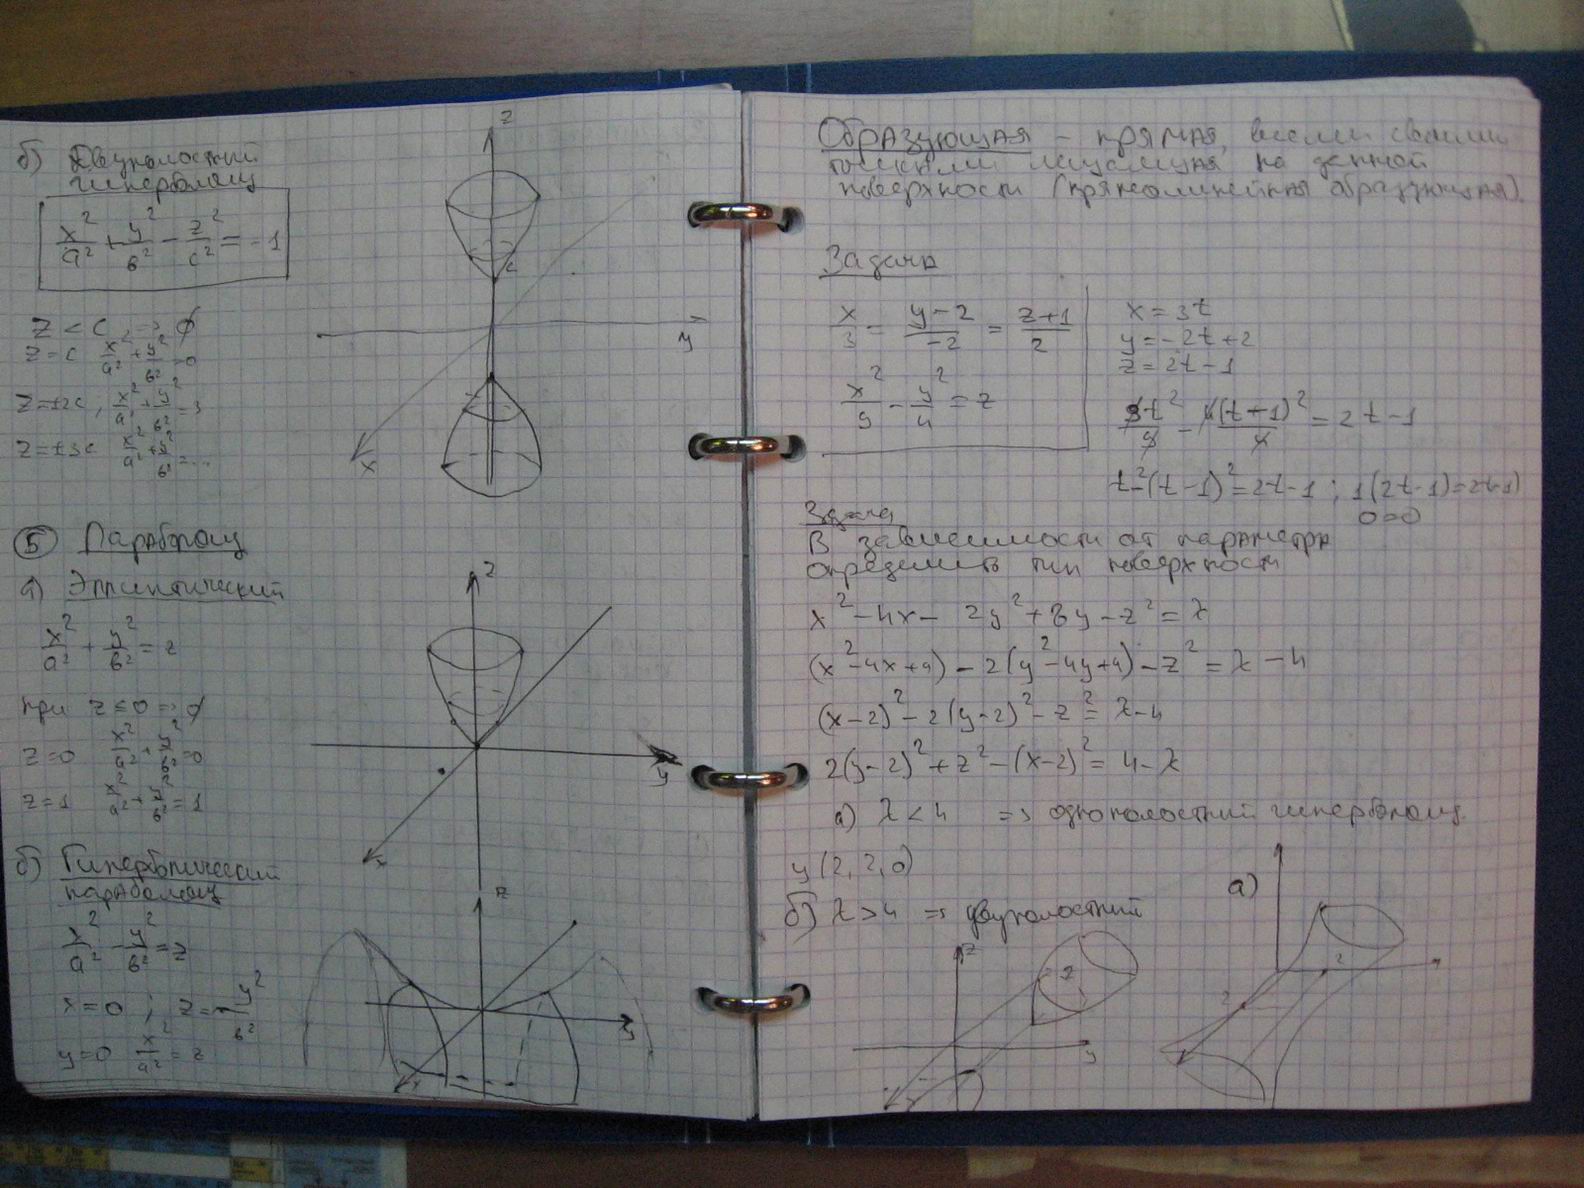 б) Двуполостный
гиперболоид
x²/a² + y²/b² - z²/c² = -1
z < c => ∅
z = c x²/a² + y²/b² = 0
z = ±2c; x²/a² + y²/b² = 3
z = ±3c x²/a² + y²/b² = ...
z
c
y
x
⑤ Параболоид
а) Эллиптический
x²/a² + y²/b² = z
при z ≤ 0 => ∅
z = 0 x²/a² + y²/b² = 0
z = 1 x²/a² + y²/b² = 1
z
y
x
б) Гиперболический
параболоид
x²/a² - y²/b² = z
x = 0; z = -y²/b²
y = 0 x²/a² = z
z
y
x
Образующая - прямая, всеми своими
точками лежащая на данной
поверхности (прямолинейная образующая).
Задача
x/3 = (y-2)/-2 = (z+1)/2
x²/9 - y²/4 = z
x = 3t
y = -2t + 2
z = 2t - 1
9t²/9 - 4(t+1)²/4 = 2t - 1
t² - (t-1)² = 2t - 1; 1(2t-1) = 2t-1)
0=0
Задача
В зависимости от параметра
определить тип поверхности
x² - 4x - 2y² + 8y - z² = λ
(x² - 4x + 4) - 2(y² - 4y + 4) - z² = λ - 4
(x-2)² - 2(y-2)² - z² = λ - 4
2(y-2)² + z² - (x-2)² = 4 - λ
а) λ < 4 => однополостный гиперболоид
ц (2, 2, 0)
б) λ > 4 => двуполостный
z
2
y
x
а)
2
2